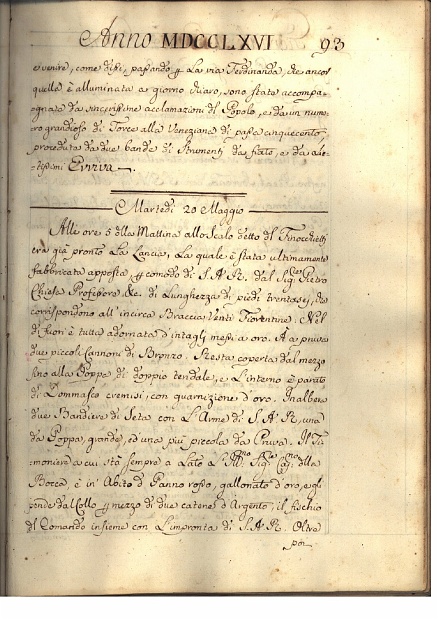 Anno MDCCLXVI 93
e venire, come dissi, passando p. La via Ferdinanda, che ancor
quella è alluminata a giorno chiaro, sono stata accompa-
gnata da sincerissime acclamazioni del Popolo, e da un nume-
ro grandioso di Torce alla Veneziana di passa cinquecento,
preceduta da due bande di Strumenti da fiato, e da
Evviva
Martedì 20 Maggio
Alle ore 5 della Mattina allo Scalo detto del Finocchietti
era già pronta La Lancia, La quale è stata ultimamente
fabbricata apposta p. comodo di S. A. R. dal Sig. Pietro
Chiesa Professore &c. di Lunghezza di piedi trentasei, che
corrispondono all'incirca Braccia Venti Fiorentine. Nel
di fuori è tutta adornata d'intagli messi a oro. A a pruva
due piccoli Cannoni di Bronzo. Resta coperta dal mezzo
fino alla Poppa di doppio tendale, e L'interno è parato
di Dommasco cremisi, con guarnizione d'oro. Inalbera
due Bandiere di Seta con L'Arme di S. A. R, una
da Poppa, grande, ed una più piccola da Pruva. Il Ti-
moniere a cui stà sempre a Lato L'Ill.mo Sig. della
Bocca, è in Abito di Panno rosso, gallonato d'oro, e gli
pende dal Collo p. mezzo di due catene d'Argento, il fischio
del Comando insieme con L'impronta di S. A. R. Oltre
por